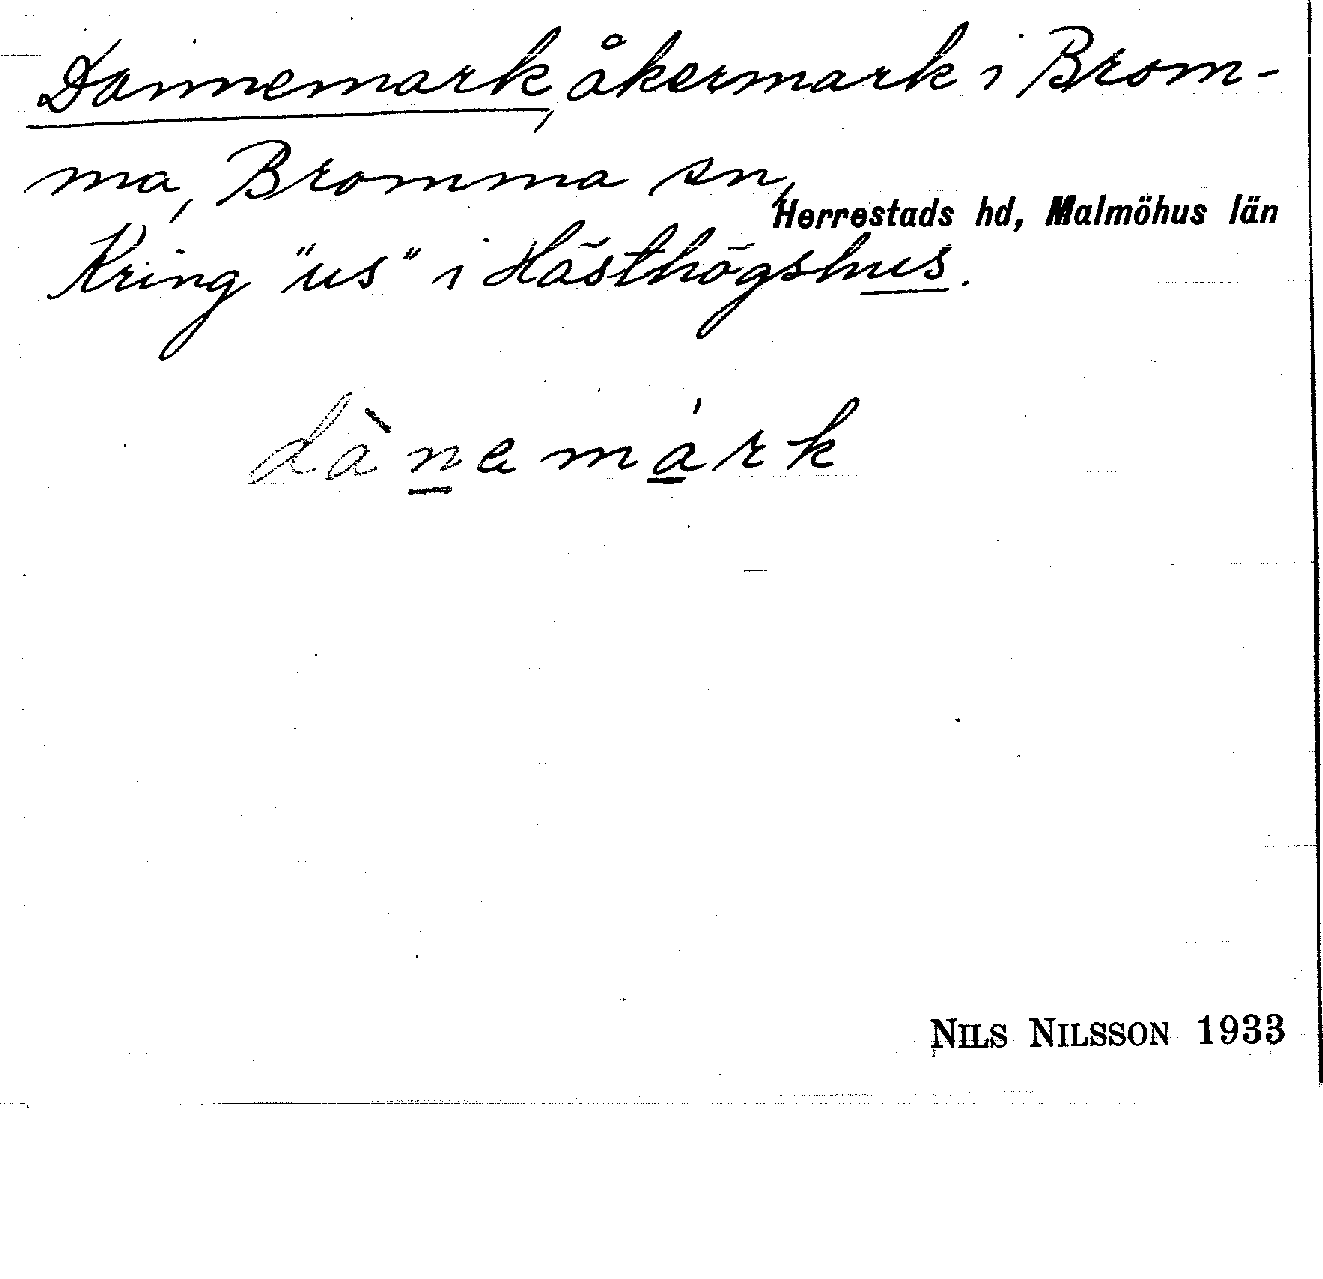 Dannemark, åkermark i Brom-
ma, Bromma sn,
Herrestads hd, Malmöhus län
Kring "us" i Hästhögshus.
dànemárk
NILS NILSSON 1933